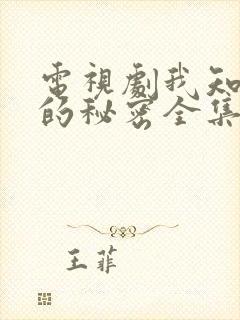 電視劇我知
的秘密全集
王菲